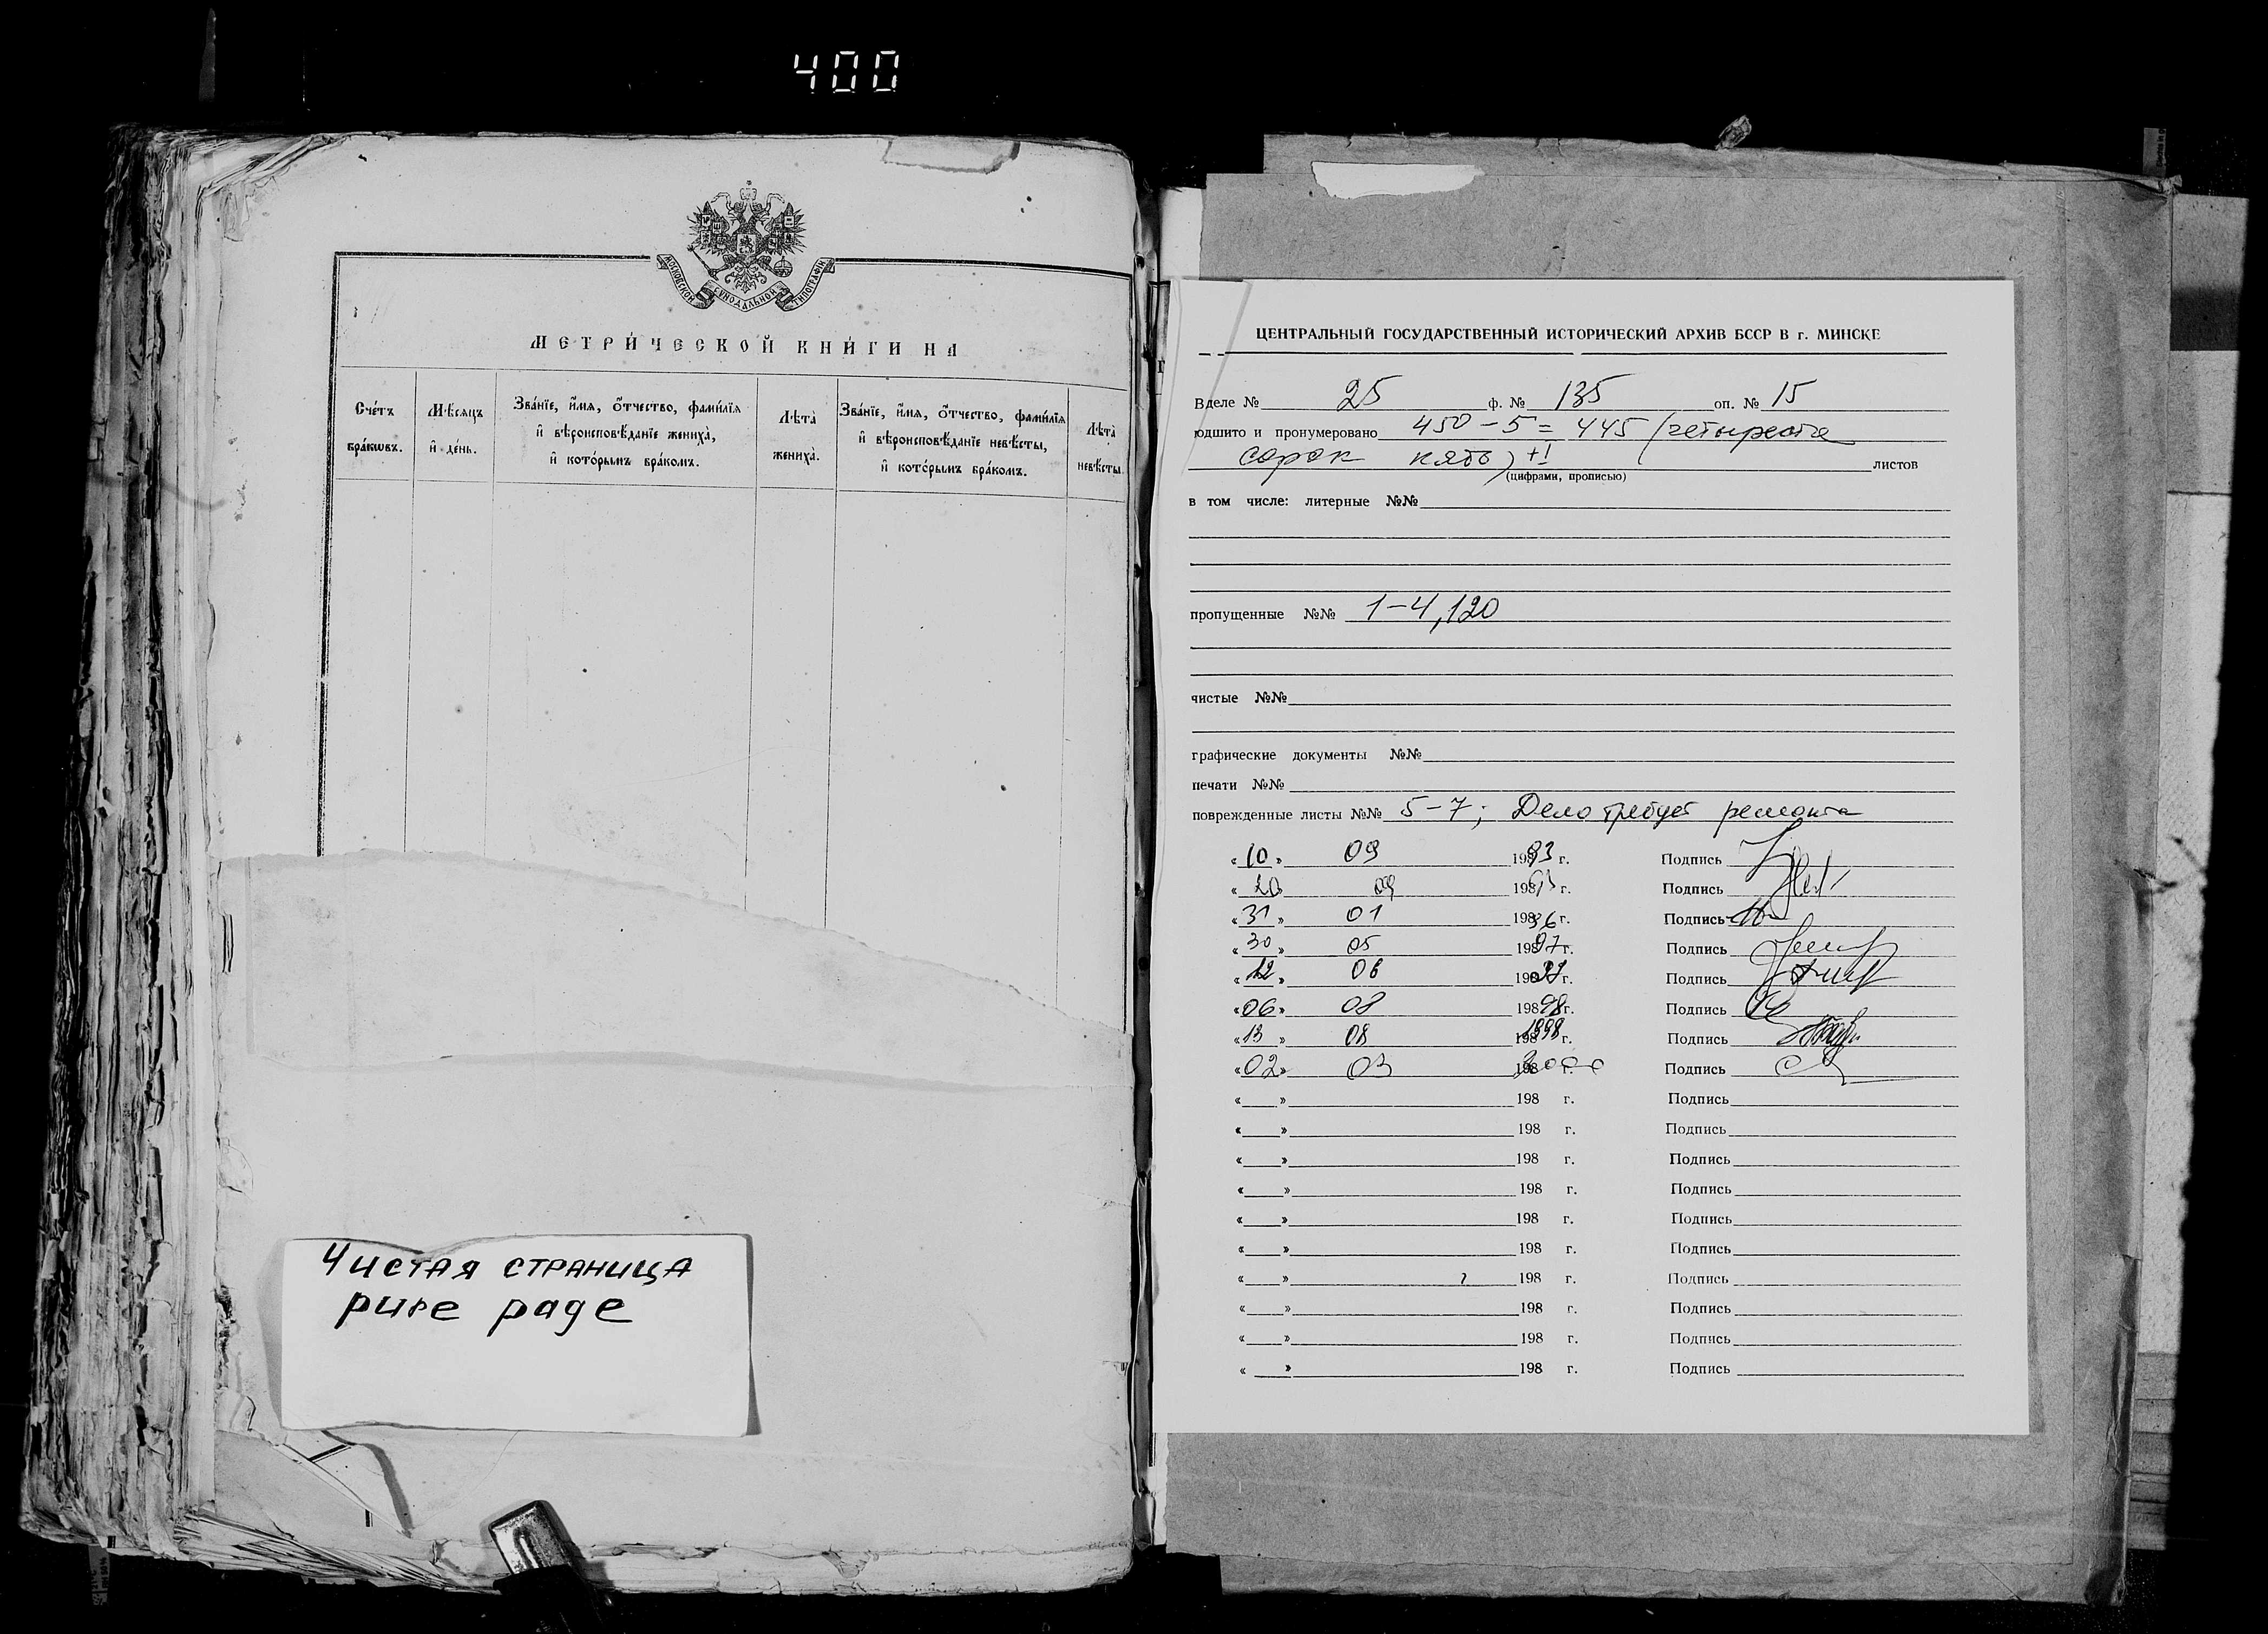 400
МОСКОВСКОЙ СѴНОДАЛЬНОЙ ТИПОГРАФІИ
МЕТРИ́ЧЕСКОЙ КНИ́ГИ НА
Сче́тъ бра́кѡвъ.
Мѣ́сяцъ и҆ де́нь.
Зва́нїе, и҆́мя, ѻ҆́тчество, фами́лїя и҆ вѣроисповѣ́данїе жениха̀, и҆ кото́рымъ бра́комъ.
Лѣ́та̀ жениха̀.
Зва́нїе, и҆́мя, ѻ҆́тчество, фами́лїя и҆ вѣроисповѣ́данїе невѣ́сты, и҆ кото́рымъ бра́комъ.
Лѣ́та̀ невѣ́сты
Чистая страница
pure page
ЦЕНТРАЛЬНЫЙ ГОСУДАРСТВЕННЫЙ ИСТОРИЧЕСКИЙ АРХИВ БССР В г. МИНСКЕ
В деле № 25 ф. № 135 оп. № 15
подшито и пронумеровано 450 – 5 = 445 (четыреста
сорок пять) +1 листов
(цифрами, прописью)
в том числе: литерные №№
пропущенные №№ 1–4, 120
чистые №№
графические документы №№
печати №№
поврежденные листы №№ 5–7; Дело требует ремонта
«10» 09 1993 г. Подпись
«20» 09 198 г. Подпись
«31» 01 1996 г. Подпись
«30» 05 1997 г. Подпись
«12» 06 г. Подпись
«06» 08 1998 г. Подпись
«13» 08 1998 г. Подпись
«02» 03 2000 г. Подпись
« » 198 г. Подпись
« » 198 г. Подпись
« » 198 г. Подпись
« » 198 г. Подпись
« » 198 г. Подпись
« » 198 г. Подпись
« » 198 г. Подпись
« » 198 г. Подпись
« » 198 г. Подпись
« » 198 г. Подпись